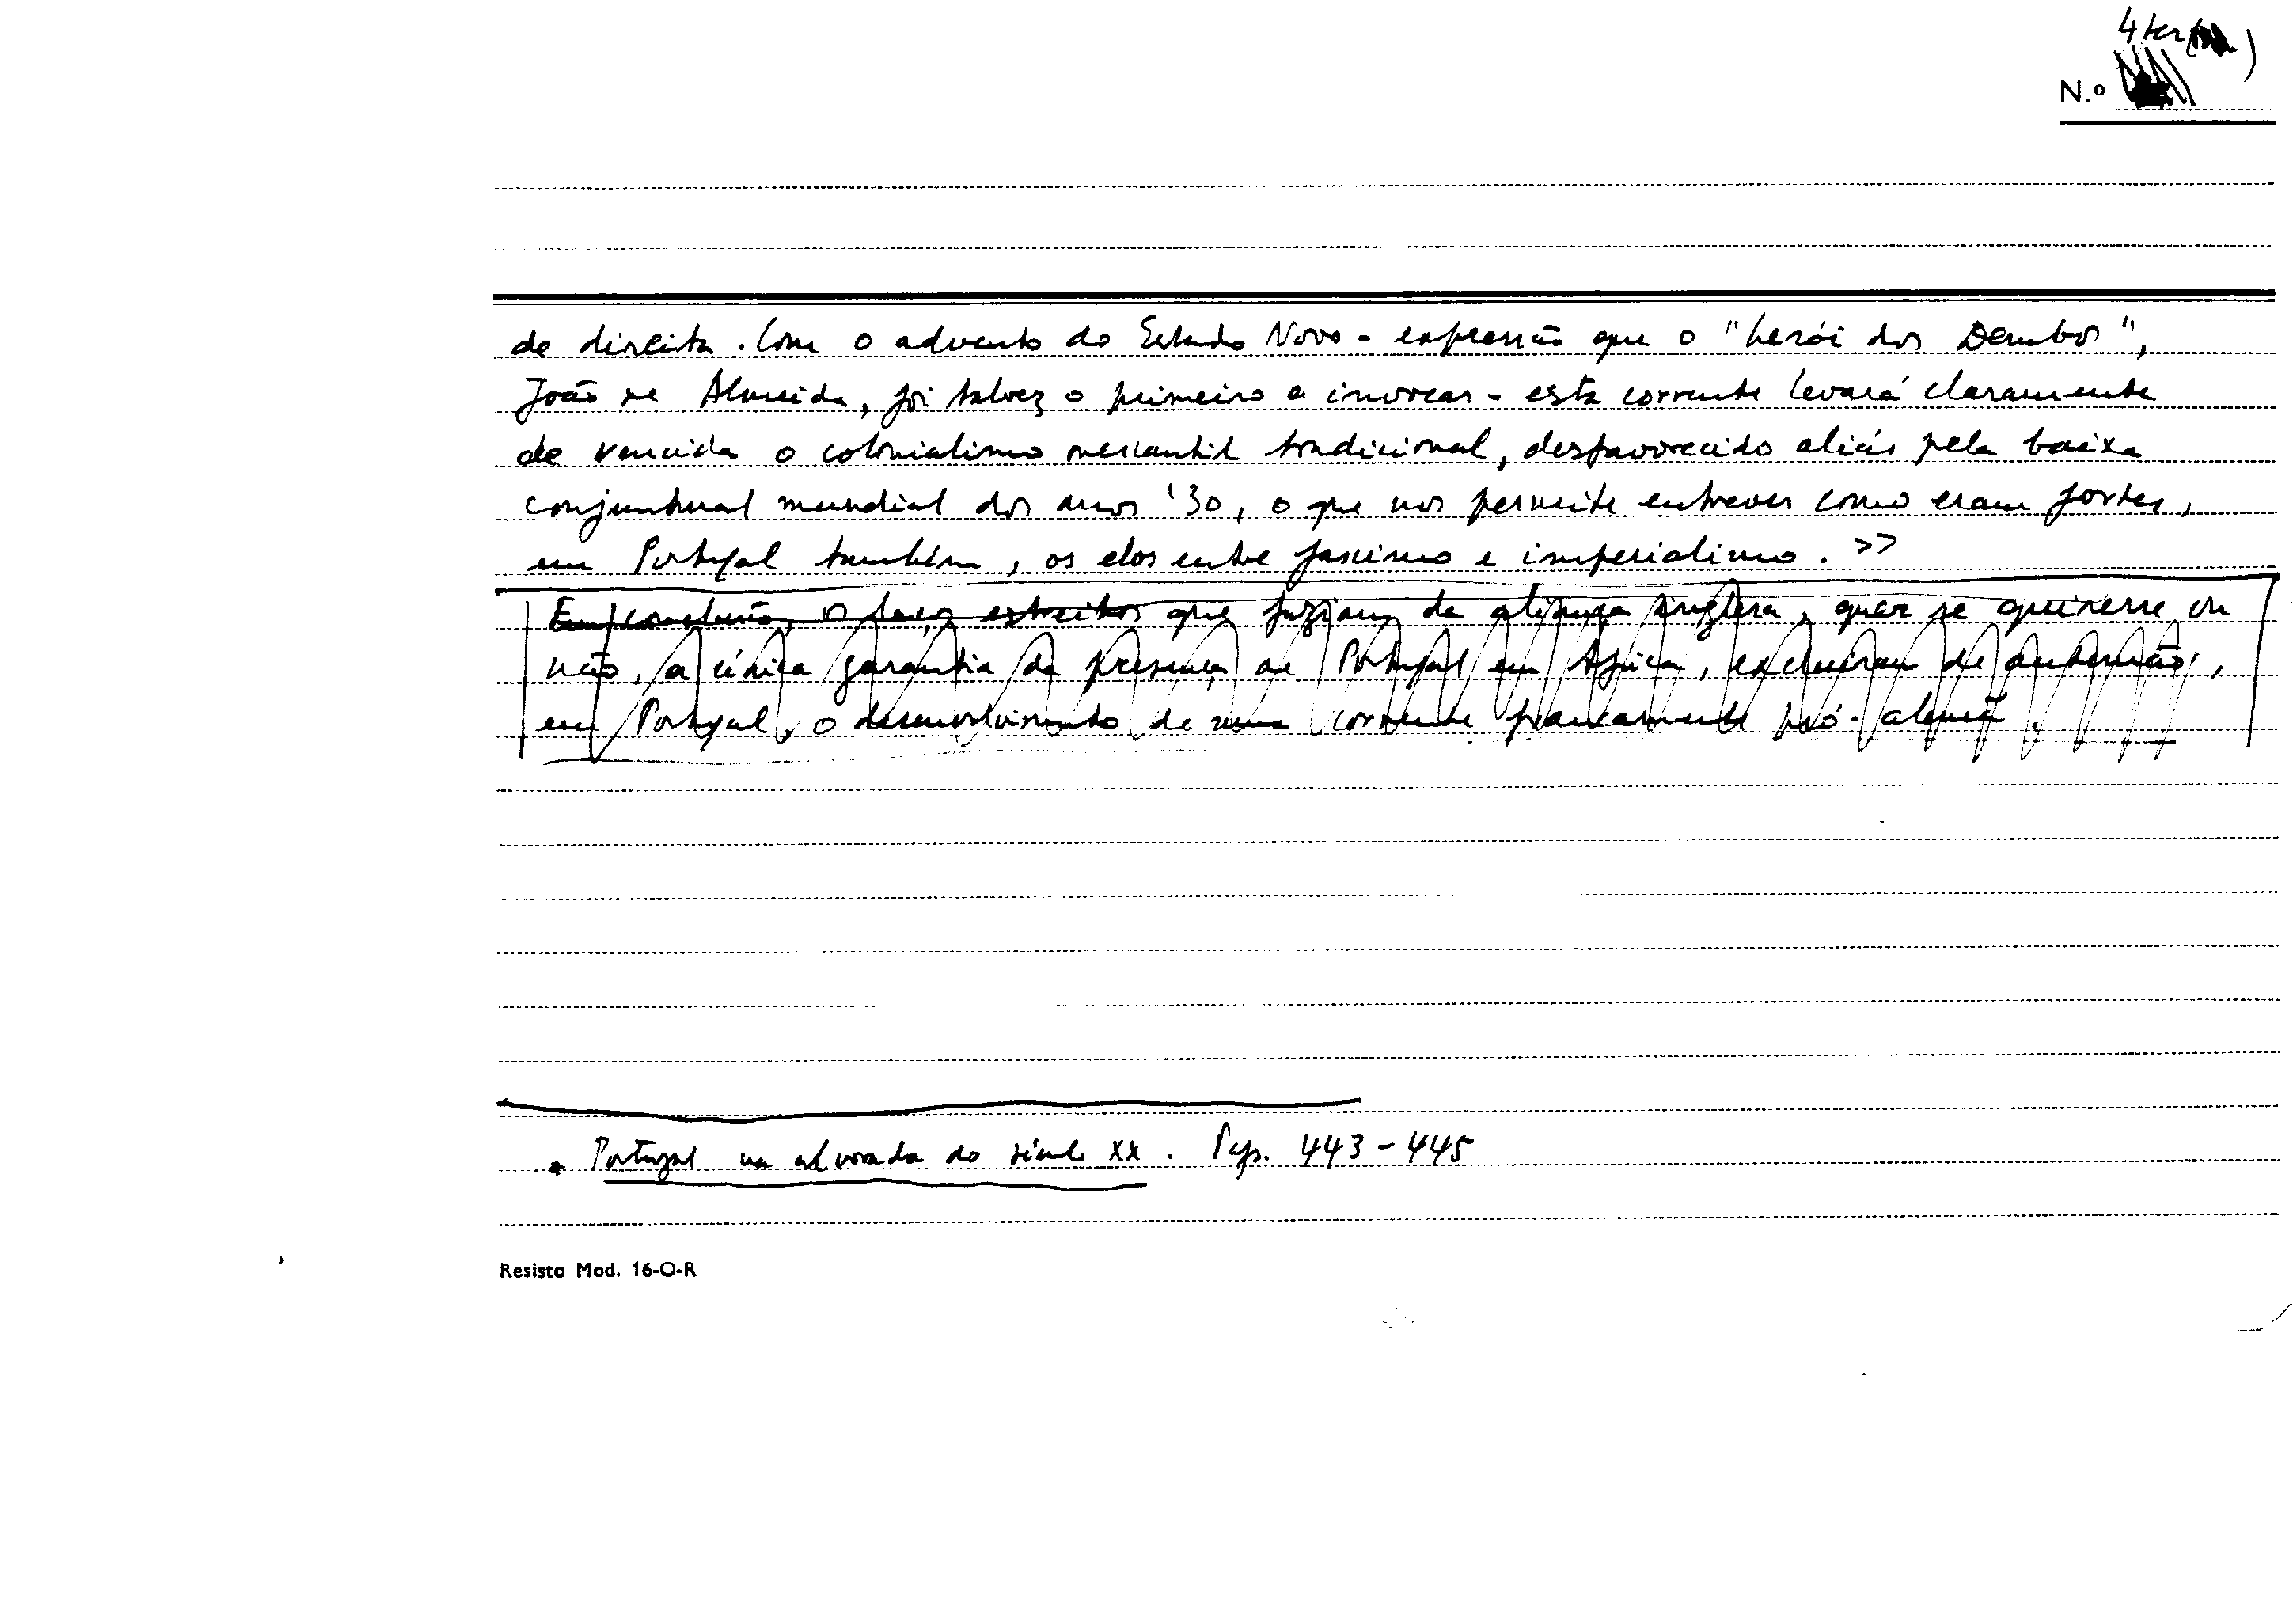 4 ter
N.º
de direita. Com o advento do Estado Novo - expressão que o "herói dos Dembos",
João de Almeida, foi talvez o primeiro a invocar - esta corrente levará claramente
de vencida o colonialismo mercantil tradicional, desfavorecido aliás pela baixa
conjuntural mundial dos anos '30, o que nos permite entrever como eram fortes,
em Portugal também, os elos entre fascismo e imperialismo. >>
Em conclusão, os laços estreitos que faziam da aliança inglesa, quer se quisesse ou
não, a única garantia da presença de Portugal em África, excluíram de antemão,
em Portugal, o desenvolvimento de uma corrente francamente pró-alemã.
* Portugal na alvorada do século XX. Pgs. 443-445
Resisto Mod. 16-O-R